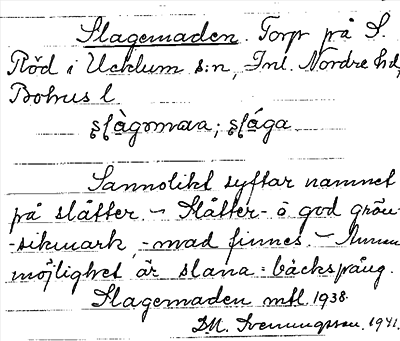 Slagemaden. Torp på S.
Röd i Ucklum s:n, Inl. Nordre hd,
Bohus l.
Sannolikt syftar namnet
på slåtter. – Slåtter- o god grön-
-sikmark, -mad finnes. – Annan
möjlighet är slana = bäckspång.
Slagemaden mtl. 1938.
D.M. Svenungsson. 1941.